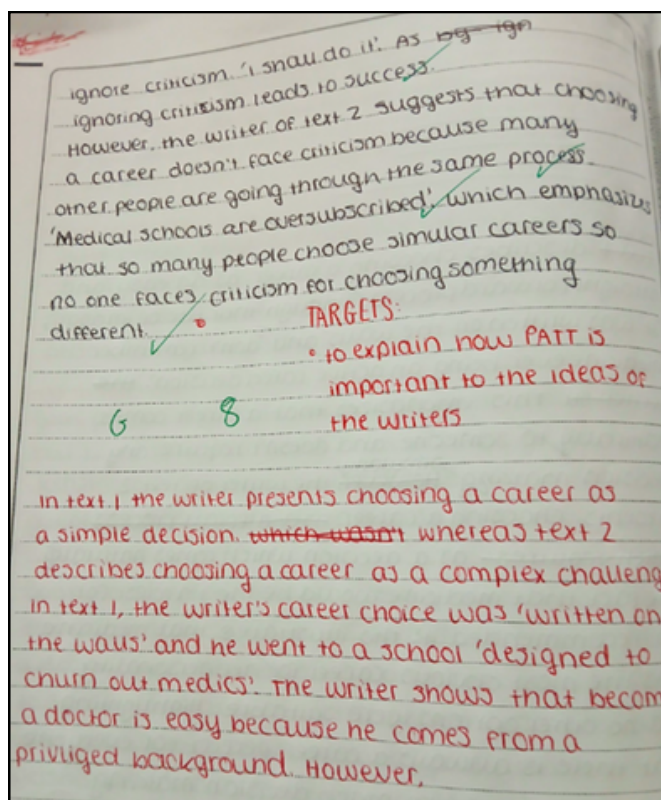 ignore criticism. 'I shall do it'. As by ign
ignoring critisism leads to success.
However, the writer of text 2 suggests that choosing
a career doesn't face criticism because many
other people are going through the same process.
'Medical schools are oversubscribed', which emphasizes
that so many people choose simular careers so
no one faces criticism for choosing something
different.
TARGETS:
• to explain how PATT is
important to the ideas of
the writers
G 8
In text 1 the writer presents choosing a career as
a simple decision. which wasn't whereas text 2
describes choosing a career as a complex challeng
In text 1, the writer's career choice was 'written on
the walls' and he went to a school 'designed to
churn out medics'. The writer shows that becom
a doctor is easy because he comes from a
privliged background. However,